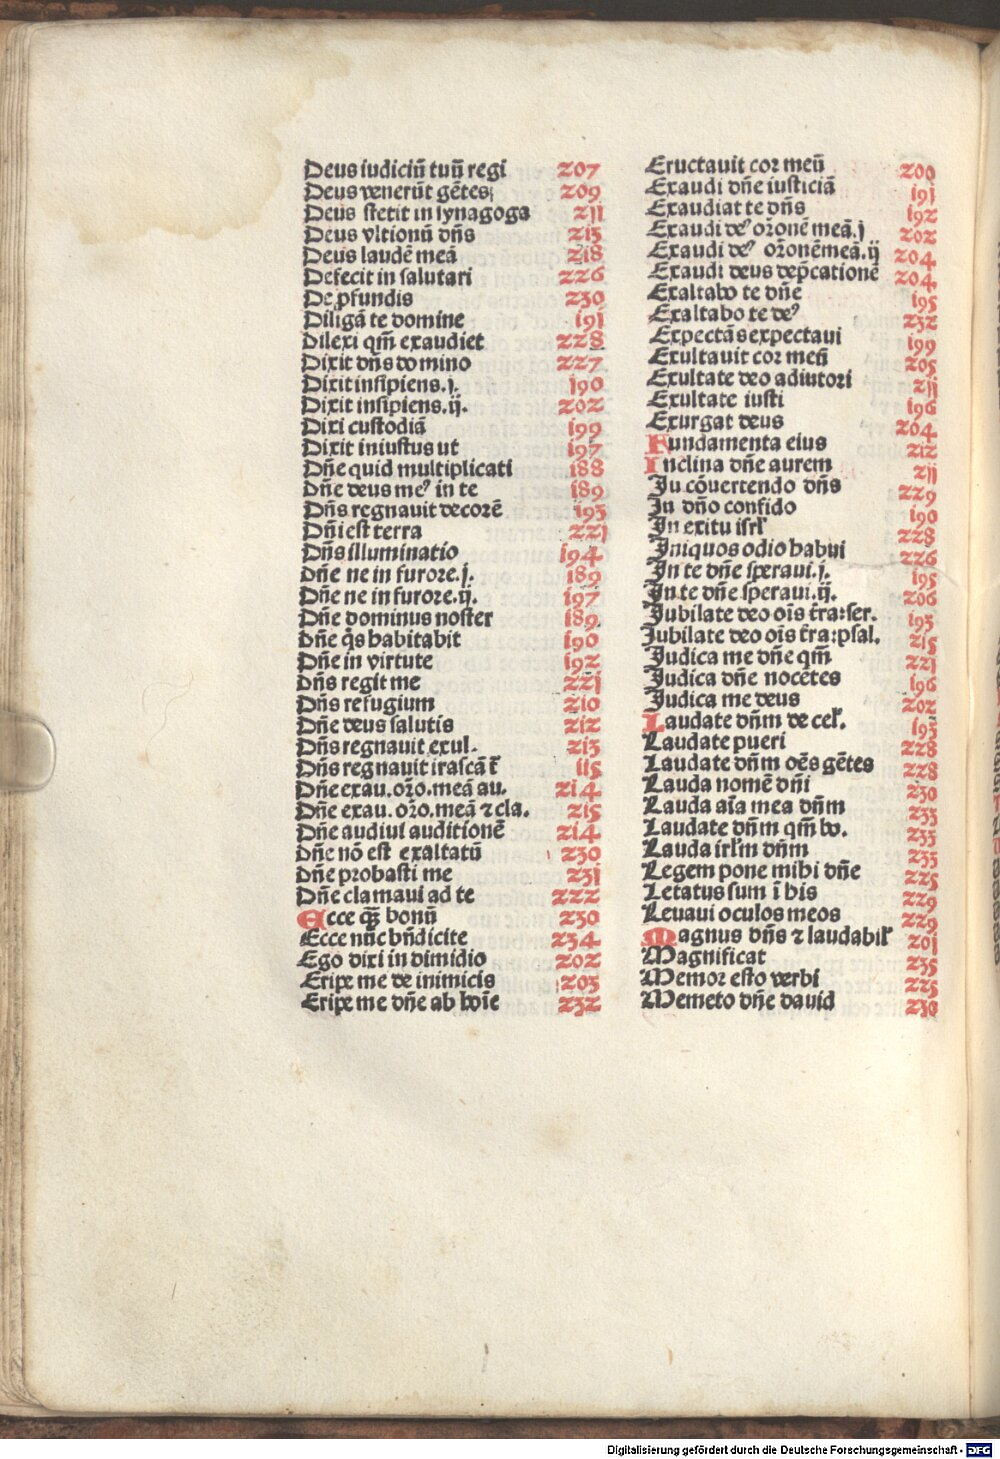 Deus iudiciū tuū regi 207
Deus venerūt gētes 209
Deus stetit in synagoga 211
Deus vltionū dñs 213
Deus laudē meā 218
Defecit in salutari 226
De pfundis 230
Diligā te domine 191
Dilexi qm̄ exaudiet 228
Dixit dñs domino 227
Dixit insipiens.j. 190
Dixit insipiens.ij. 202
Dixi custodiā 199
Dixit iniustus ut 197
Dñe quid multiplicati 188
Dñe deus me⁹ in te 189
Dñs regnauit decorē 193
Dñi est terra 221
Dñs illuminatio 194
Dñe ne in furore.j. 189
Dñe ne in furore.ij. 197
Dñe dominus noster 189
Dñe q̄s habitabit 190
Dñe in virtute 192
Dñs regit me 221
Dñs refugium 210
Dñe deus salutis 212
Dñs regnauit exul. 213
Dñs regnauit irascāt̄ 115
Dñe exau.oro.meā au. 214
Dñe exau.oro.meā ⁊ cla. 215
Dñe audiui auditionē 214
Dñe nō est exaltatū 230
Dñe probasti me 231
Dñe clamaui ad te 222
Ecce q̄ȝ bonū 230
Ecce nūc bñdicite 234
Ego dixi in dimidio 202
Eripe me de inimicis 203
Eripe me dñe ab hoīe 232
Eructauit cor meū 200
Exaudi dñe iusticiā 191
Exaudiat te dñs 192
Exaudi de⁹ orōnē meā.j 202
Exaudi de⁹ orōnē meā.ij 204
Exaudi deus dep̄cationē 204
Exaltabo te dñe 195
Exaltabo te de⁹ 232
Expectās expectaui 199
Exultauit cor meū 205
Exultate deo adiutori 211
Exultate iusti 196
Exurgat deus 204
Fundamenta eius 212
Inclina dñe aurem 211
In cōuertendo dñs 229
In dño confido 190
In exitu isrl̄ 228
Iniquos odio habui 226
In te dñe speraui.j. 195
In te dñe speraui.ij. 206
Iubilate deo oīs t̄ra:ser. 193
Iubilate deo oīs t̄ra:psal. 215
Iudica me dñe qm̄ 221
Iudica dñe nocētes 196
Iudica me deus 202
Laudate dñm de cel̄. 193
Laudate pueri 228
Laudate dñm oēs gētes 228
Lauda nomē dñi 230
Lauda aīa mea dñm 233
Laudate dñm qm̄ bo. 233
Lauda irl̄m dñm 233
Legem pone mihi dñe 225
Letatus sum ī his 229
Leuaui oculos meos 229
Magnus dñs ⁊ laudabil̄ 201
Magnificat 235
Memor esto verbi 225
Memeto dñe dauid 230
Digitalisierung gefördert durch die Deutsche Forschungsgemeinschaft - DFG